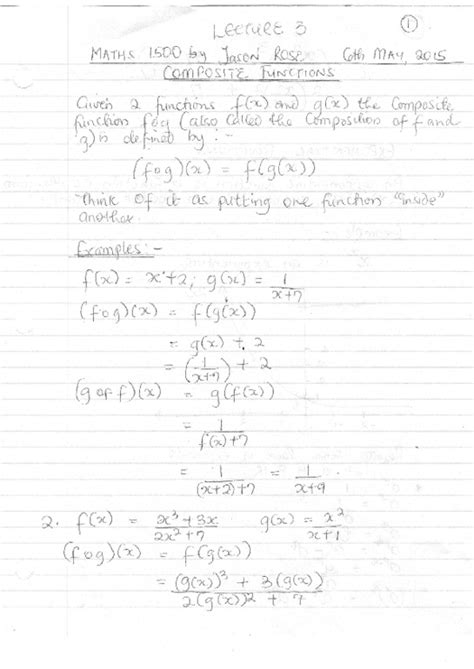 Lecture 3
①
MATHS 1500 by Jason Rose 6th MAY 2015
COMPOSITE FUNCTIONS
Given 2 functions f(x) and g(x) the Composite
function fog (also called the Composition of f and
g) is defined by :-
(fog)(x) = f(g(x))
Think of it as putting one function "inside"
another.
Examples :-
f(x) = x+2; g(x) = 1/(x+7)
(fog)(x) = f(g(x))
= g(x) + 2
= (1/(x+7)) + 2
(g of f)(x) = g(f(x))
= 1/(f(x)+7)
= 1/((x+2)+7) = 1/(x+9)
2. f(x) = (x³+3x)/(2x²+7) g(x) = x²/(x+1)
(fog)(x) = f(g(x))
= ((g(x))³ + 3(g(x)))/(2(g(x))² + 7)